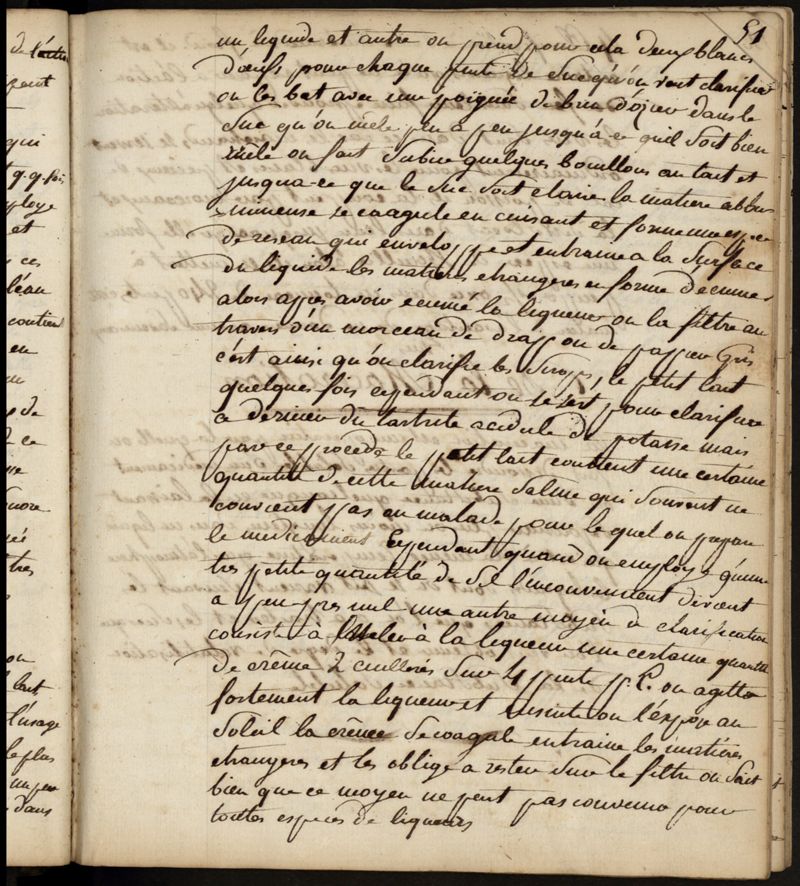 51
un liquide et autre on prend pour cela deux blancs
d'œufs pour chaque pinte de suc qu'on veut clarifier
on les bat avec une poignée de brin d'ozier dans le
suc qu'on mele peu a peu jusqu'à ce quil soit bien
mele on fait subir quelques bouillons au tout et
jusqua-ce que le suc soit claire la matiere albu
-mineuse se coagule en cuisant et forme une espece
de reseau qui enveloppe et entraine a la surface
du liquide les matieres etrangeres en forme d'ecume
alors appres avoir ecumé la liqueur on la filtre au
travers d'un morceau de drapp ou de pappier gris
c'est ainsi qu'on clarifie les sirops, le petit lait
quelques fois cependant on se sert pour clarifier
ce dernier du tartrite acidule de potasse mais
par ce procede le petit lait contient une certaine
quantité de cette matiere saline qui souvent ne
convient pas au malade pour le quel on prepare
le medicament Cependant quand on employe q'une
tres petite quantité de sel l'inconvenient devient
a peu pres nul une autre moyen de clarification
consiste à meler à la liqueur une certaine quantité
de crême 2 cuillerés sur 4 pinte p. E. on agitte
fortement la liqueur et ensuite on l'expose au
soleil la crêmee se coagule entraine les matières
etrangeres et les oblige a rester sur le filtre on sait
bien que ce moyen ne peut pas convenir pour
toutes especes de liqueurs
de l'autre
peut
qui
q.q. fois
ploye
et
ces
contient
en
de
ce
encore
tres
on
lait
l'usage
le plus
un peu
dans